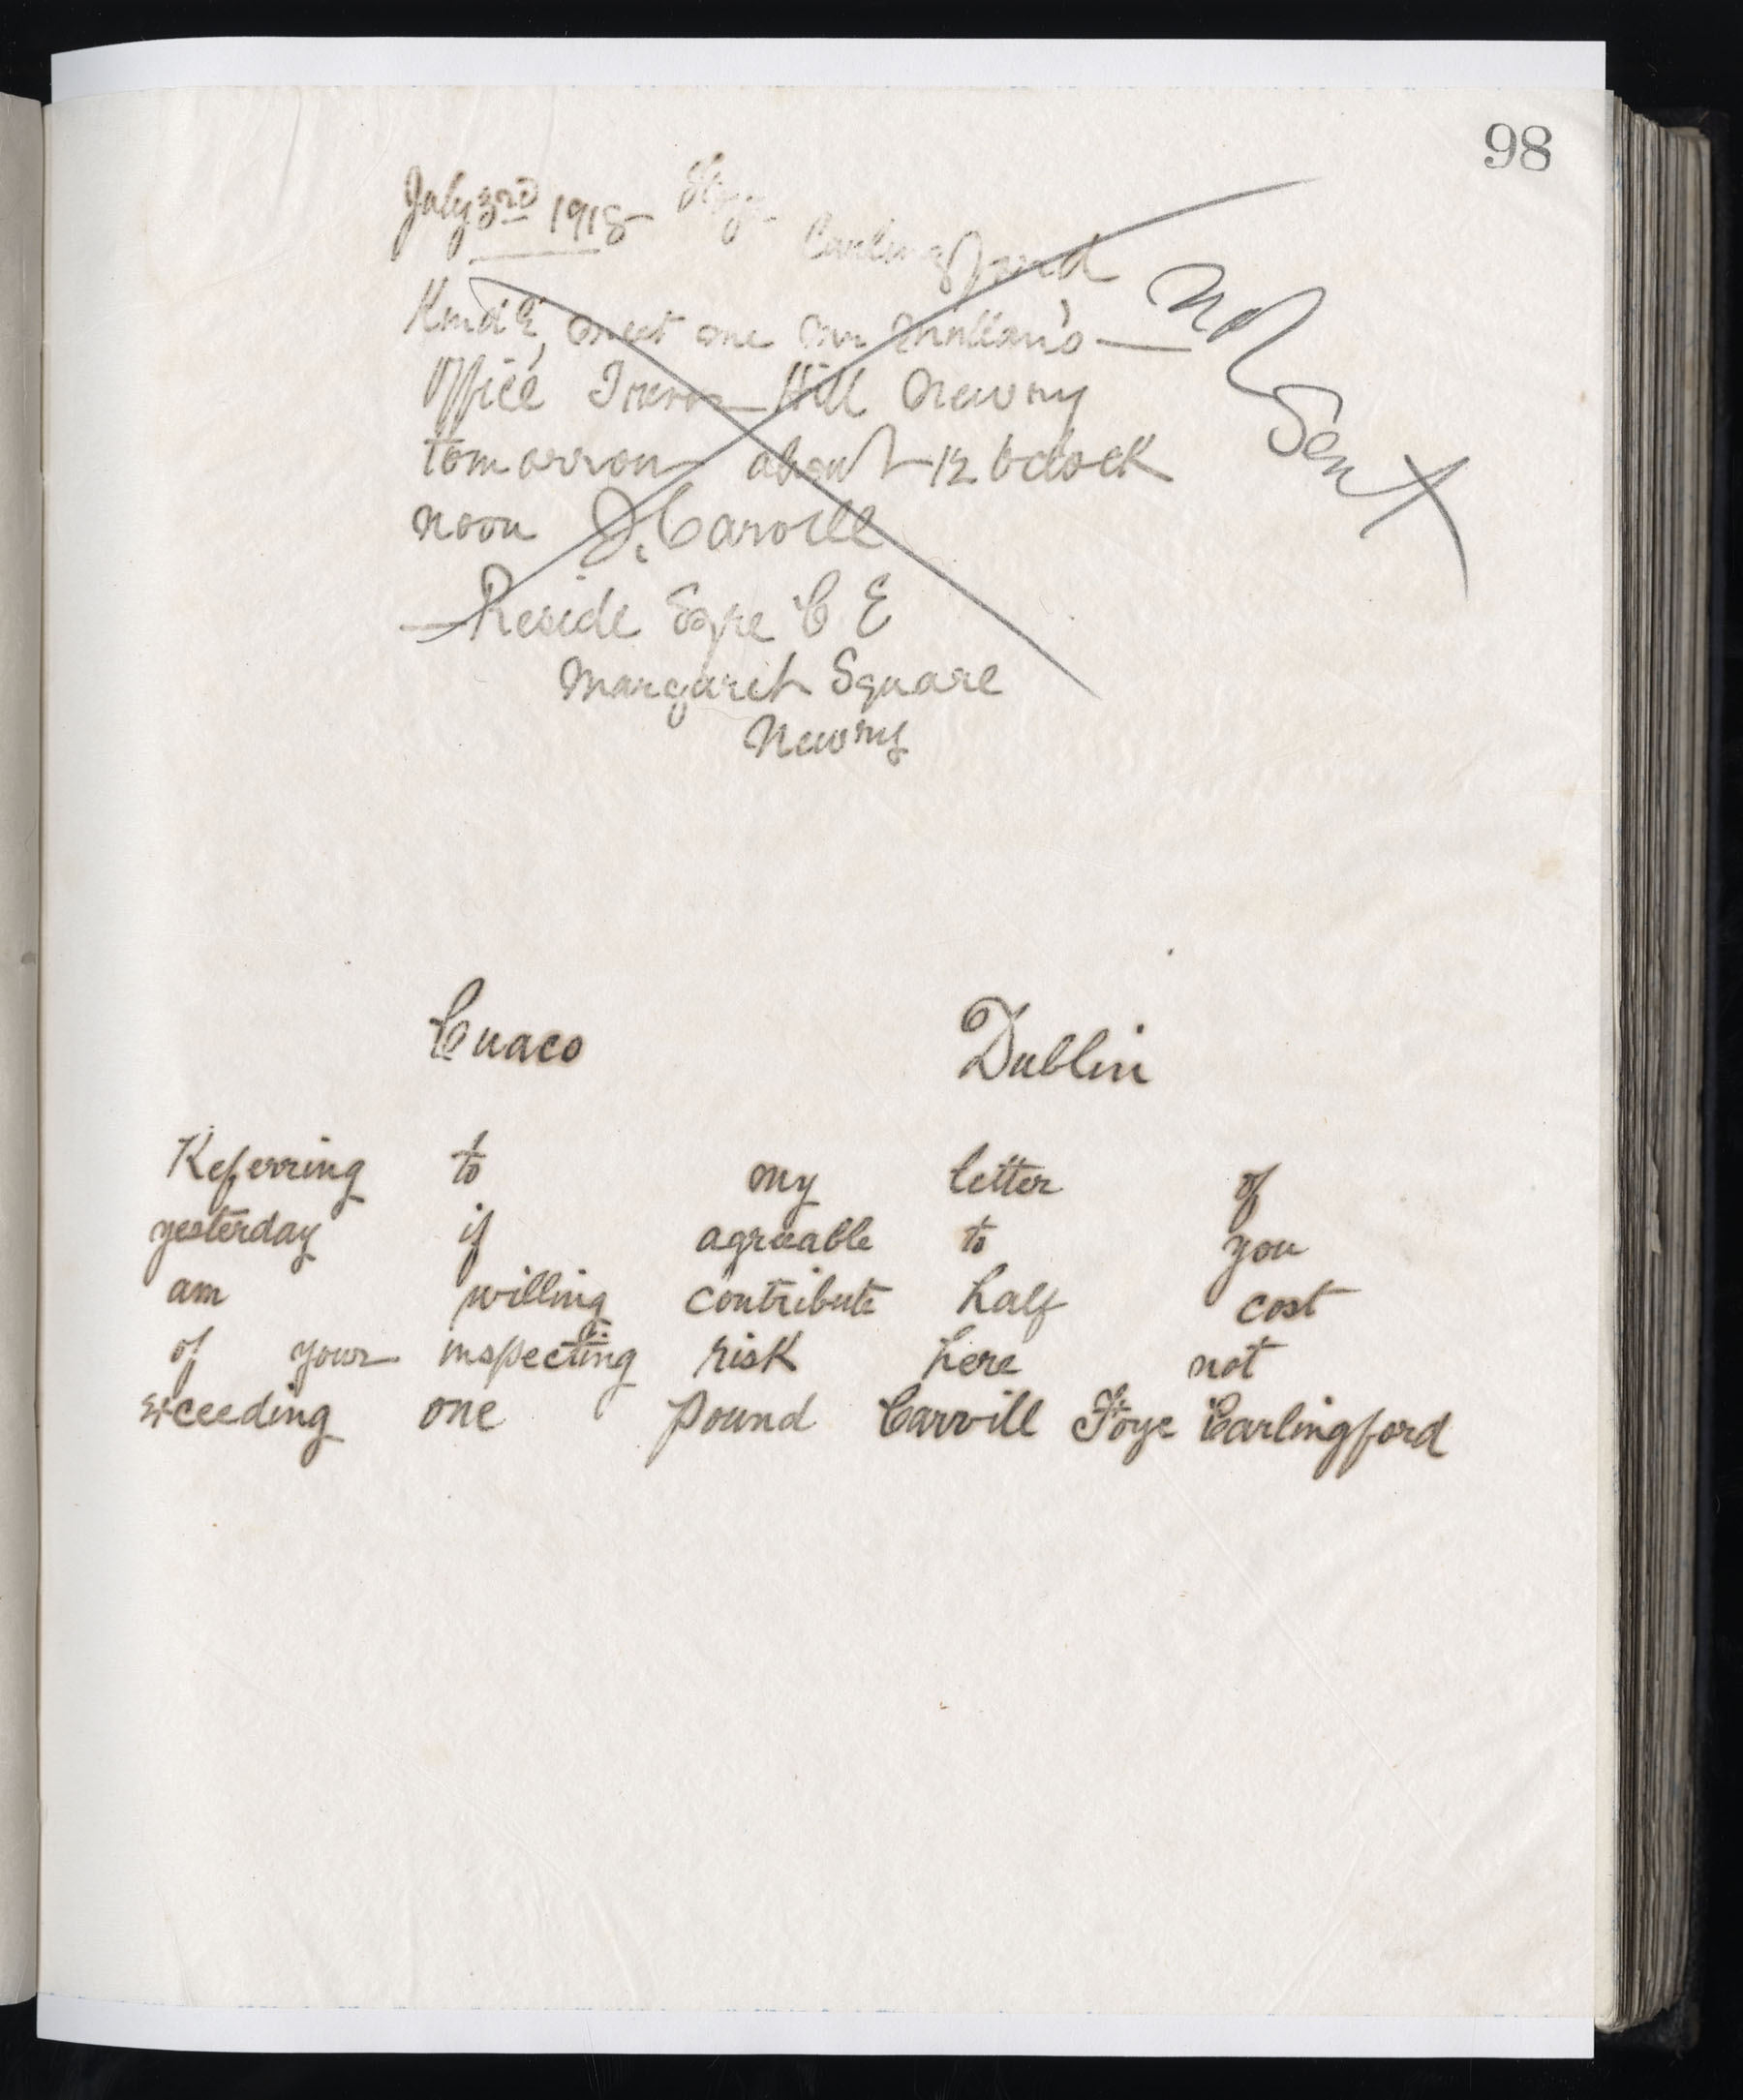 98
July 3rd 1918
Carlingford
Kindly meet me Mr Mollan's
Office Trevor Hill Newry
tomorrow about 12 oclock
noon J. Carvill
Reside Esqre C E
Margaret Square
Newry
Not Sent
Cuaco Dublin
Referring to my letter of
yesterday if agreeable to you
am willing contribute half cost
of your inspecting risk here not
exceeding one pound Carvill Ffoye Carlingford